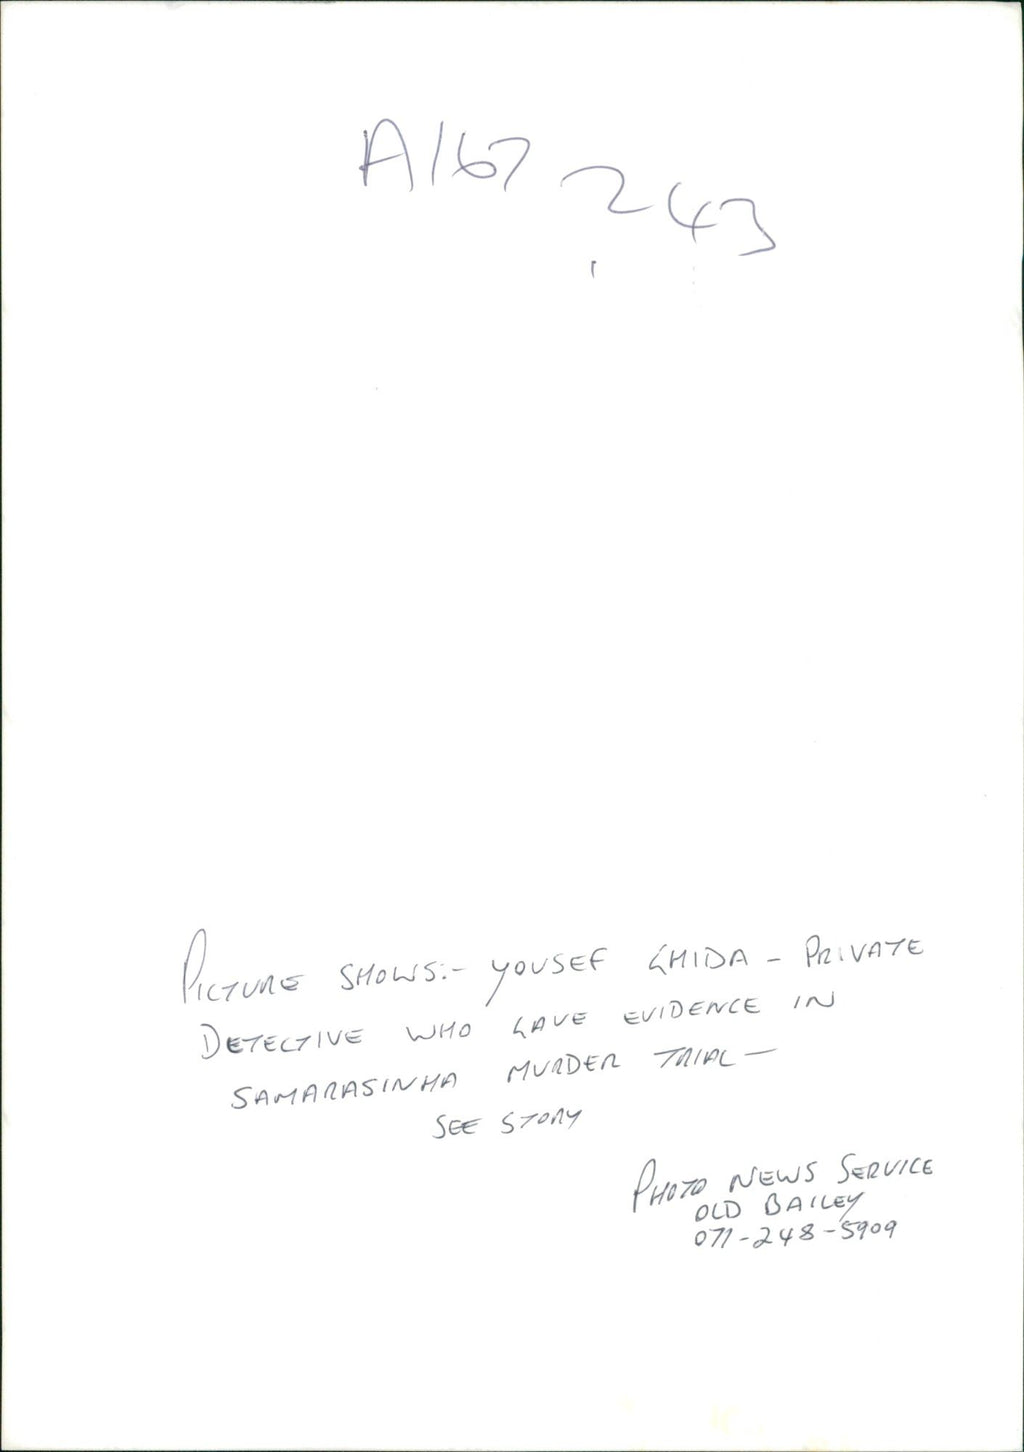 A167 243
PICTURE SHOWS:- YOUSEF GHIDA - PRIVATE
DETECTIVE WHO GAVE EVIDENCE IN
SAMARASINHA MURDER TRIAL -
SEE STORY
PHOTO NEWS SERVICE
OLD BAILEY
071-248-5909